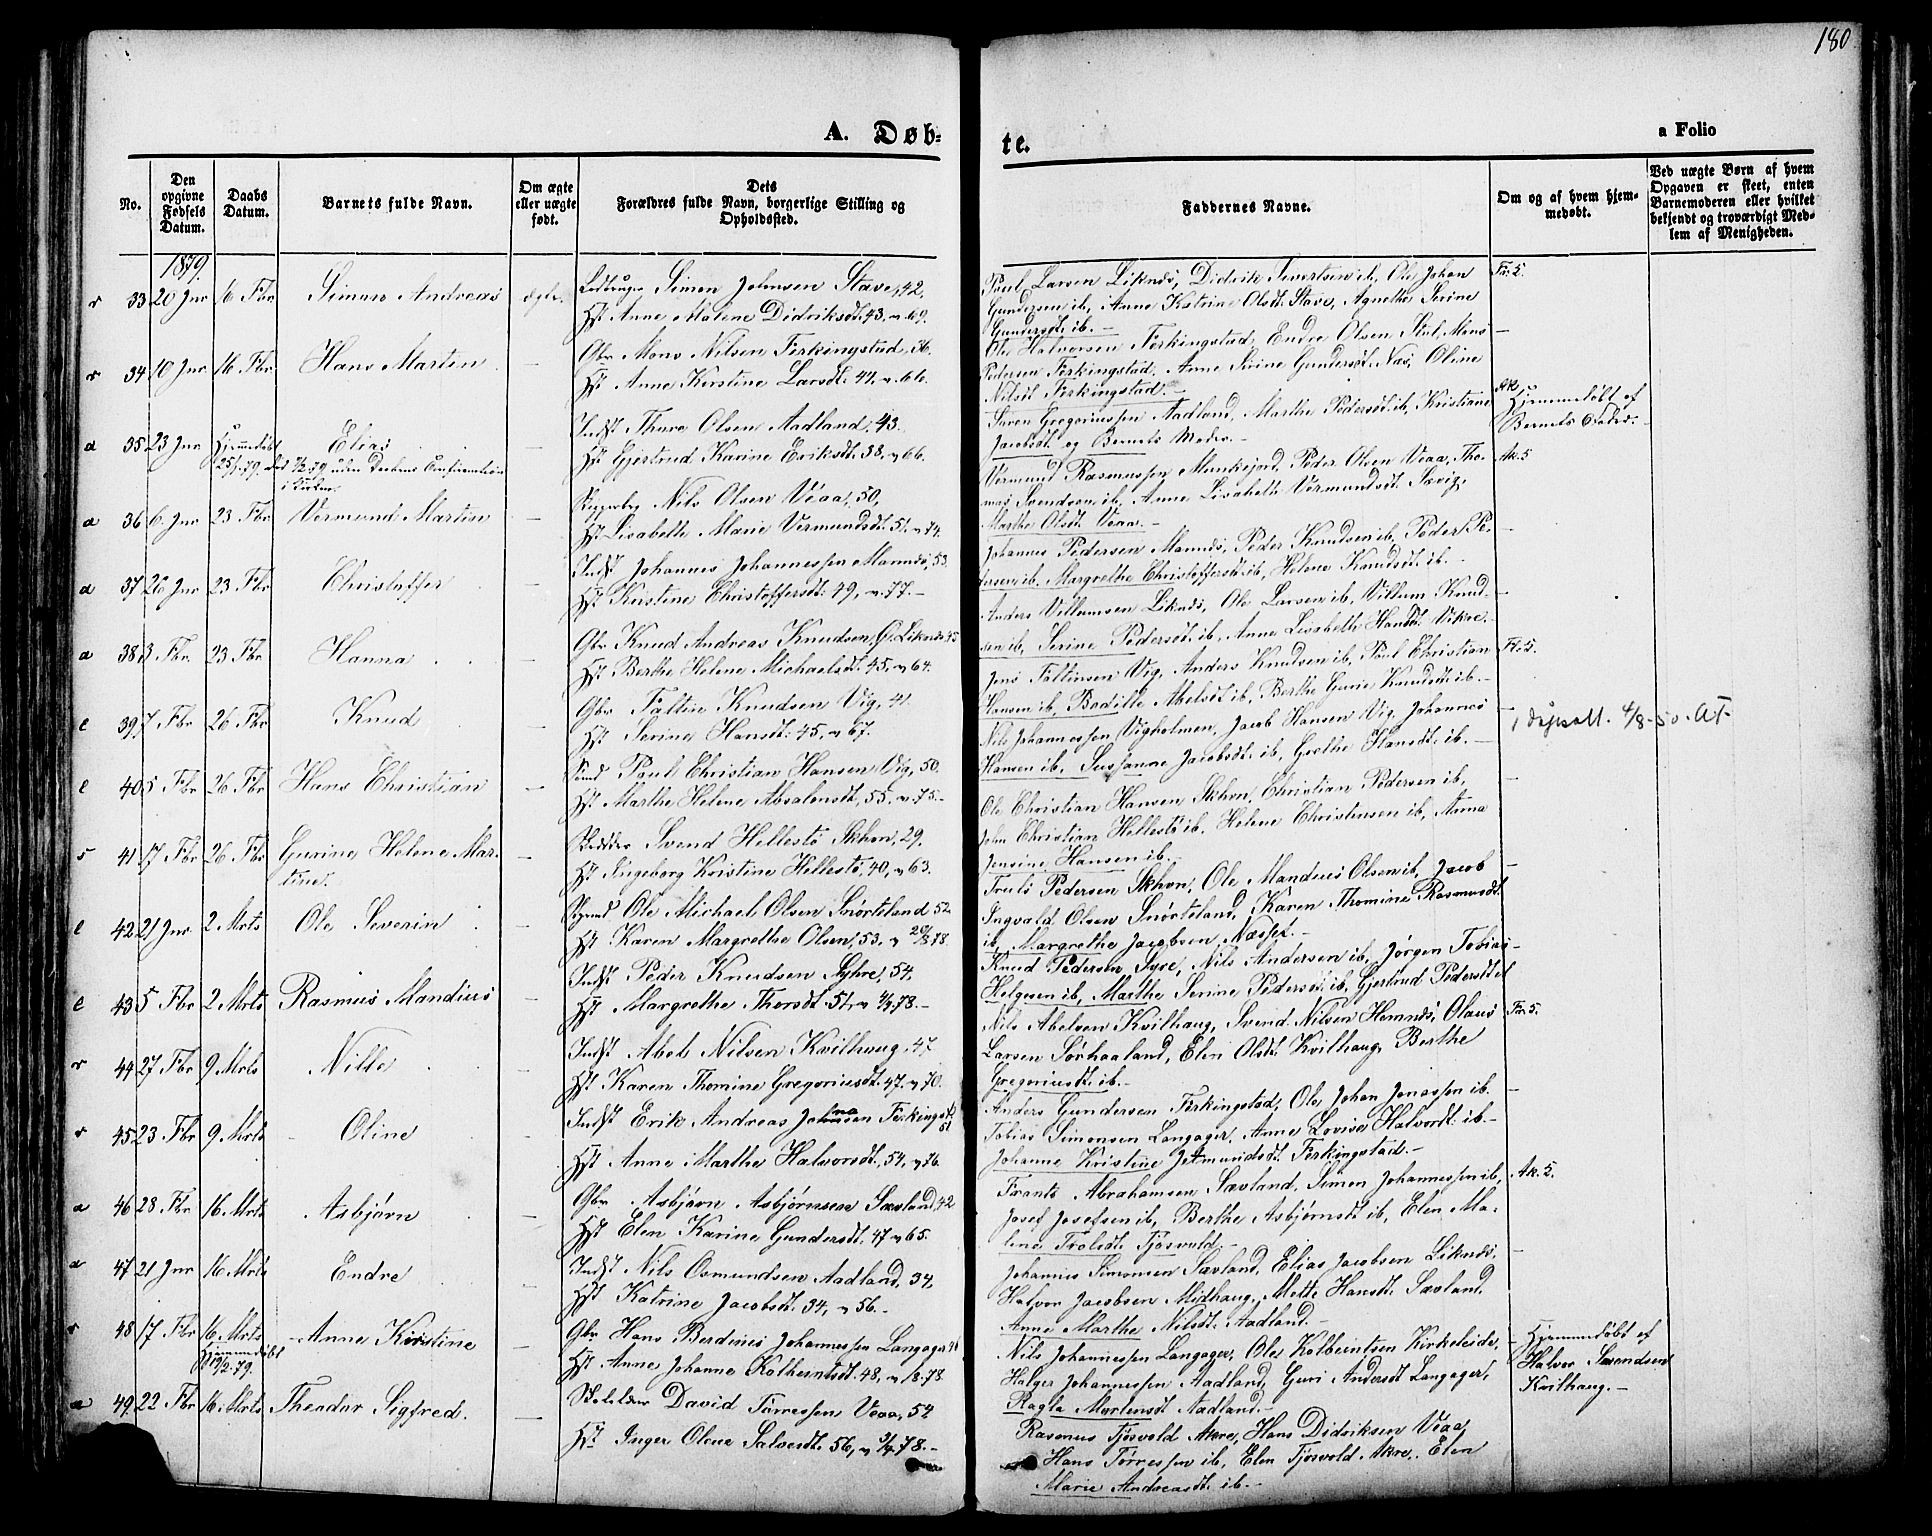 180
A. Døb-
te.
a Folio
No.
Den opgivne Fødsels Datum.
Daabs Datum.
Barnets fulde Navn.
Om ægte eller uægte født.
Dets Forældres fulde Navn, borgerlige Stilling og Opholdssted.
Faddernes Navne.
Om og af hvem hjemmedøbt.
Ved uægte Børn af hvem Opgaven er skeet, enten Barnemoderen eller hvilket bekjendt og troværdigt Medlem af Menigheden.
1879.
r 33 20 Jnr 16 Fbr Simon Andreas
Simon Johnsen Stave, 42,
Hst Anne Malene Didriksdt. 43. 69.
Paul Larsen Liknæs, Didrik Sivertsen ib, Ole Johan
Gundersen ib, Anne Katrine Olsdt. Stave, Agnethe Serine
Gundersdt. ib. —
r 34 10 Jnr 16 Fbr Hans Martin —
Gbr Mons Nilsen Ferkingstad, 36.
Hst Anne Kirstine Larsdt. 44, 66.
Ole Halvorsen Ferkingstad, Endre Olsen Stol, Mons
Pedersen Ferkingstad. Anne Serine Gundersdt. Næs, Oline
Nilsdt Ferkingstad. —
a 35 23 Jnr Hjemmedøbt 25/1. 79. Elias —
Indst Thure Olsen Aadland, 43.
Hst Gjertrud Karine Eriksdt. 38, 66.
Søren Gregoriussen Aadland, Marthe Pedersdt. ib, Kristiane
Jacobsdt. og Barnets Moder. —
Hjemmedøbt af
Barnets Fader. —
a 36 6 Jnr 23 Fbr Vermund Martin —
Nils Olsen Veaa, 50,
Hst Lisabeth Marie Vermundsdt. 51. 74.
Vermund Rasmussen Munkejord, Peder Olsen Veaa, Tho-
mas Svendsen ib, Anne Lisabeth Vermundsdt. Sævig,
Marthe Olsdt. Veaa. —
a 37 26 Jnr 23 Fbr Christoffer —
Indst Johannes Johannessen Mannæs, 53.
Hst Kirstine Christoffersdt. 49, 77. —
Johannes Pedersen Mannæs, Peder Knudsen ib, Peder Pe-
dersen ib. Margrethe Christoffersdt. ib, Helene Knudsdt. ib. —
a 38 3 Fbr 23 Fbr Hanna —
Gbr Knud Andreas Knudsen, Ø. Liknæs, 45
Hst Berthe Helene Michaelsdt. 45, 64.
Anders Villumsen Liknæs, Ole Larsen ib, Villum Knud-
sen ib, Serine Pedersdt. ib, Anne Lisabeth Hansdt. Vikre. —
e 39 7 Fbr 26 Fbr Knud —
Gbr Faltin Knudsen Vig, 41.
Hst Serine Hansdt. 45, 67.
Jens Faltinsen Vig, Anders Knudsen ib, Paul Christian
Hansen ib, Bodille Abelsdt. ib, Berthe Gurie Knudsdt. ib. —
e 40 5 Fbr 26 Fbr Hans Christian —
Paul Christian Hansen Vig, 50.
Hst Marthe Helene Absalonsdt, 55. 75. —
Nils Johannessen Vigholmen, Jacob Hansen Vig, Johannes
Hansen ib, Susanne Jacobsdt. ib, Grethe Hansdt. ib. —
4/8-50. AT.
s 41 17 Fbr 26 Fbr Gurine Helene Mar-
tine.
Svend Hellestø Skhvn, 29.
Hst Ingeborg Kristine Hellestø, 40, 63.
Ole Christian Hansen Skhvn, Christian Pedersen ib,
John Christian Hellestø ib. Helene Christensen ib, Anna
Jensine Hansen ib. —
e 42 21 Jnr 2 Mrts Ole Severin —
Ole Michael Olsen Snørteland, 52
Hst Karen Margrethe Olsen, 53. 20/3 78.
Truls Pedersen Skhvn, Ole Mandius Olsen ib, Jacob
Ingvald Olsen Snørteland, Karen Thomine Rasmusdt.
ib, Margrethe Jacobsen, Næsset. —
e 43 5 Fbr 2 Mrts Rasmus Mandius —
Indst Peder Knudsen Syhre, 54.
Hst Margrethe Thorsdt. 51, 78. —
Knud Pedersen Syre, Nils Andersen ib, Jørgen Tobias
Helgesen ib, Marthe Serine Pedersdt. ib, Gjertrud Pedersdt ib
r 44 27 Fbr 9 Mrts Nille —
Indst Abel Nilsen Kvilhaug, 47.
Hst Karen Thomine Gregoriusdt. 47. 70.
Nils Abelsen Kvilhaug, Svend Nilsen Hemnæs, Olaus
Larsen Sørhaaland, Elen Olsdt. Kvilhaug, Berthe
Gregoriusdt. ib. —
r 45 23 Fbr 9 Mrts Oline —
Indst Erik Andreas Johnsen Ferkingst.
Hst Anne Marthe Halvorsdt., 54, 76.
Anders Gundersen Ferkingstad, Ole Johan Jonassen ib.
Tobias Simonsen Langager, Anne Lovise Halvordt. ib. —
Johanne Kristine Jetmundsdt Ferkingstad. —
a 46 28 Fbr 16. Mrts Asbjørn
Gbr Asbjørn Asbjørnsen Sævland, 42
Hst Elen Karine Gundersdt. 47 65.
Frants Abrahamsen Sævland. Simon Johannessen ib,
Josef Josefsen ib, Berthe Asbjørnsdt ib, Elen Ma-
lene Trolsdt. Tjøsvold —
a 47 21 Jnr 16 Mrts Endre —
Indst Nils Osmundsen Aadland, 34,
Hst Katrine Jacobsdt. 34, 56. —
Johannes Simonsen Sævland, Elias Jacobsen Liknæs,
Halvor Jacobsen Midhaug, Mette Hansdt. Sævland,
Anne Marthe Nilsdt. Aadland. —
r 48 17 Fbr 16. Mrts Hjemmedøbt 19/2. 79. Anne Kirstine —
Gbr Hans Berdines Johannessen Langager
Hst Anne Johanne Kolbeintsdt. 48, 18.78
Nils Johannessen Langager, Ole Kolbeintsen Kirkeleide,
Holger Johannessen Aadland, Guri Andersdt Langager,
Ragla Mortensdt Aadland. —
Hjemmedøbt af
Halvor Svendsen
Kvilhaug. —
a 49 22 Fbr 16. Mrts Theodor Sigfred. —
David Tørressen Veaa, 54
Hst Inger Olene Salvesdt. 56, 78. —
Rasmus Tjøsvold Akre, Hans Didriksen Veaa,
Hans Tørressen ib, Elen Tjøsvold Akre, Elen
Marie Andreasdt. ib. —